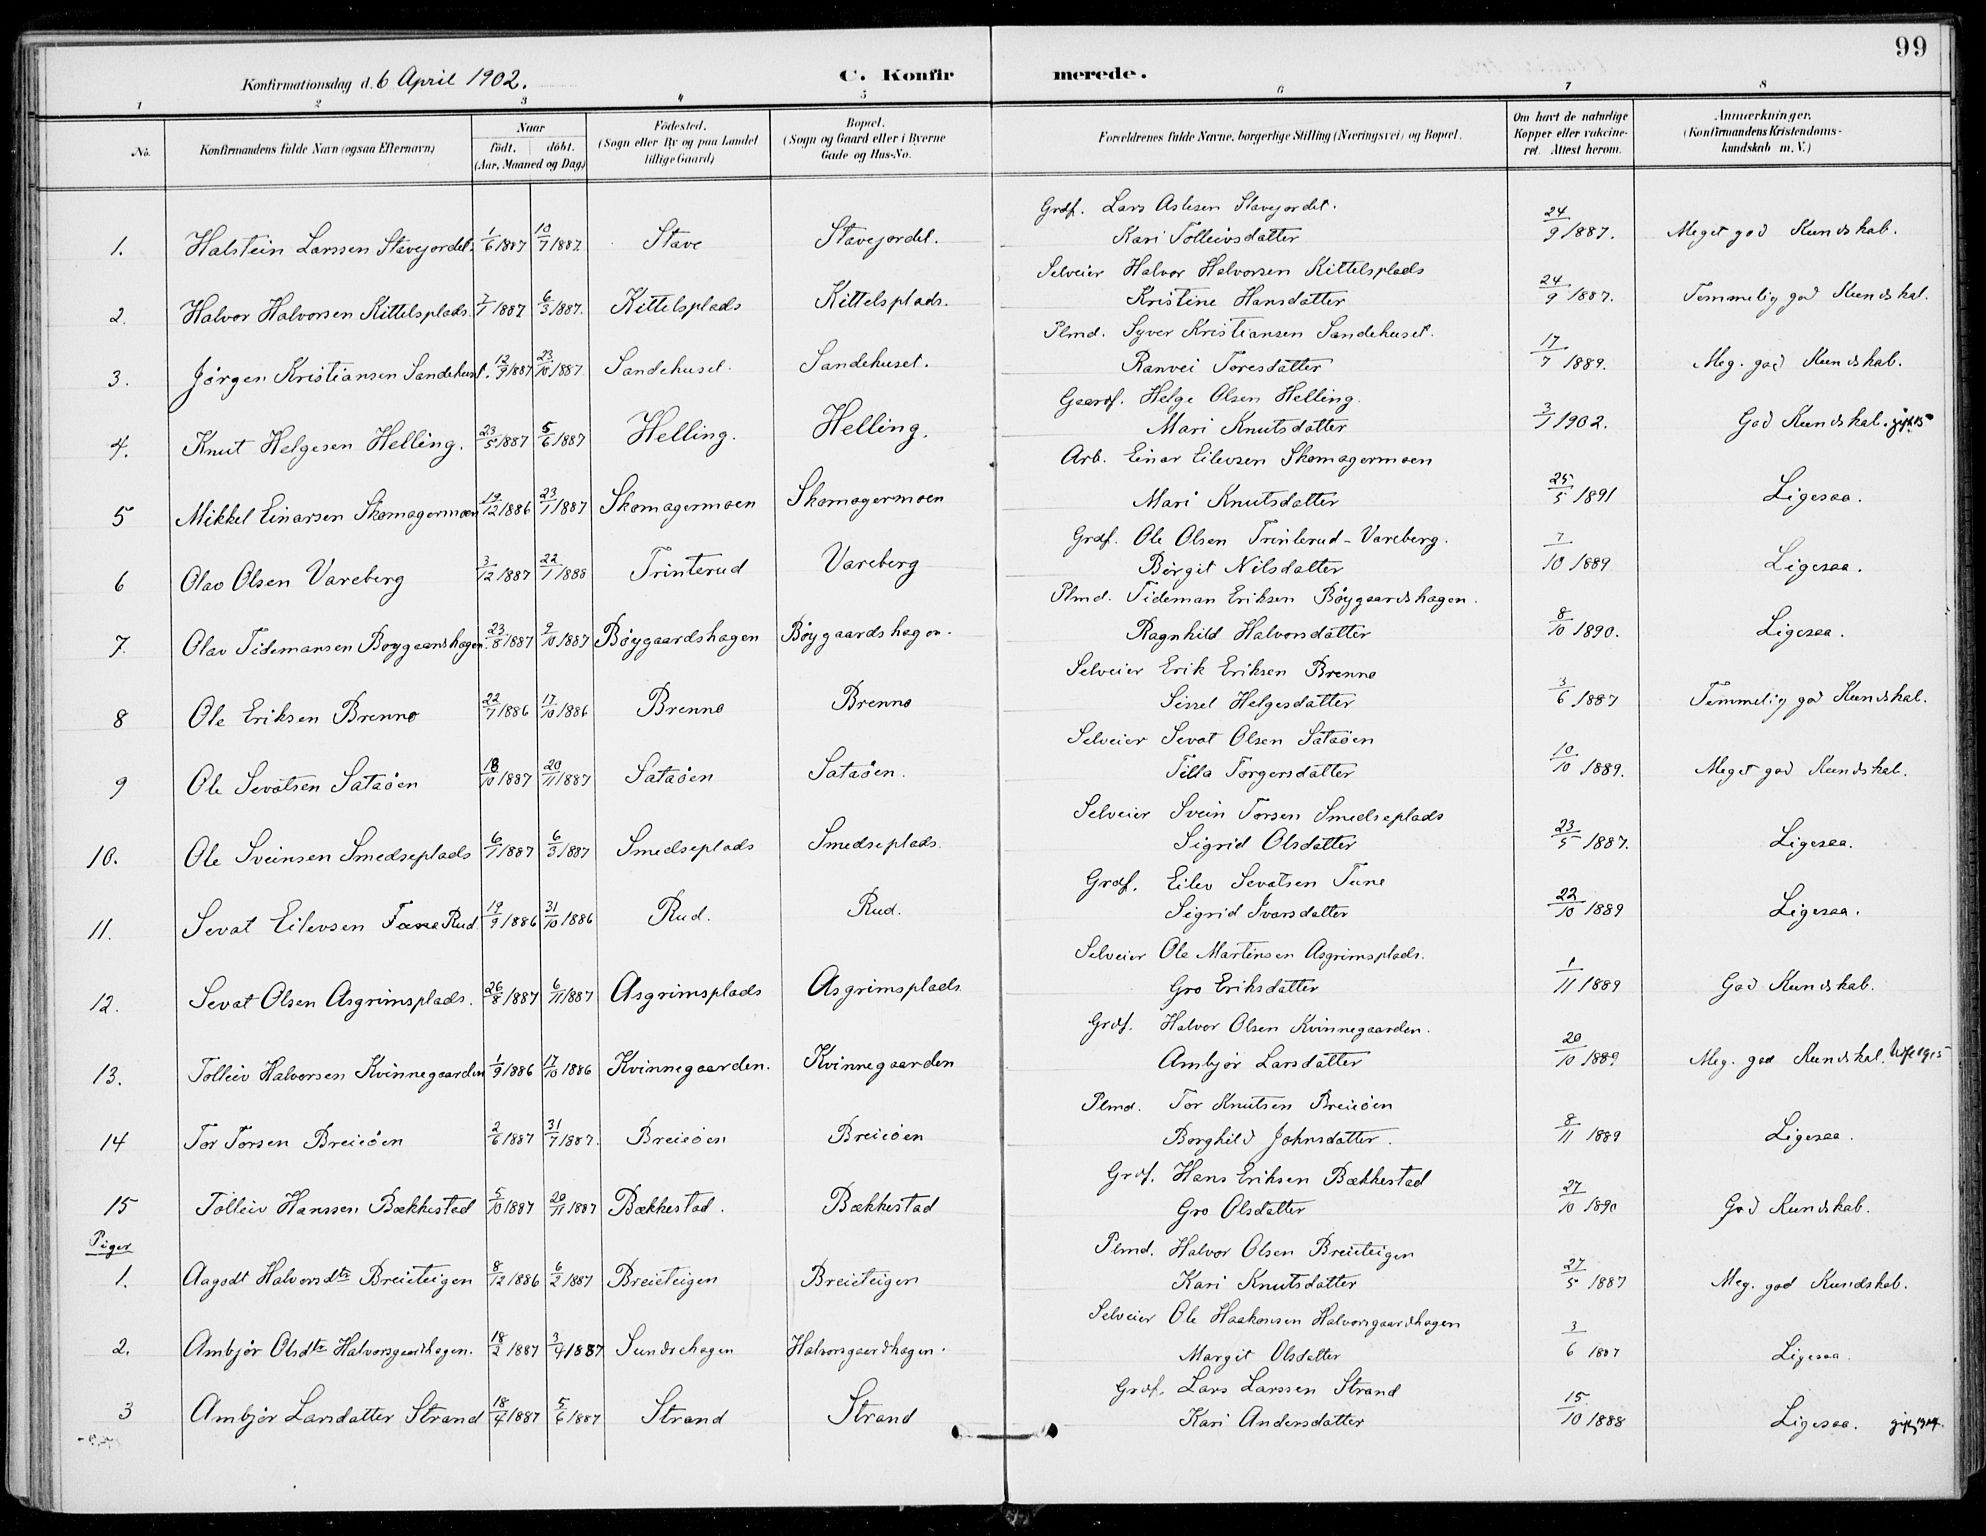 99
Konfirmationsdag d. 6 April 1902. C. Konfirmerede.
1 2 3 4 5 6 7 8
No. Konfirmandens fulde Navn (ogsaa Efternavn) Naar født. døbt. (Aar, Maaned og Dag) Fødested. (Sogn eller By og paa Landet tillige Gaard) Bopæl. (Sogn og Gaard eller i Byerne Gade og Hus-No. Forældrenes fulde Navne, borgerlige Stilling (Næringsvei) og Bopæl. Om havt de naturlige Kopper eller vakcineret. Attest herom. Anmerkninger. (Konfirmandens Kristendomskundskab m. V.)
Grdf. Lars Aslesen Stavejordet.
1. Halstein Larssen Stavejordet. 1/6 1887 10/7 1887. Stave Stavejordet. Kari Tolleivsdatter 24/9 1887. Meget god Kundskab.
Selveier Halvor Halvorsen Kittelsplads
2. Halvor Halvorsen Kittelsplads. 7/1 1887 6/3 1887. Kittelsplads Kittelsplads. Kristine Hansdatter 24/9 1887. Temmelig god Kundskab.
Plmd. Syver Kristiansen Sandehuset.
3. Jørgen Kristiansen Sandehuset. 12/9 1887 23/10 1887 Sandehuset. Sandehuset. Ranvei Toresdatter 17/7 1889. Meg. god Kundskab.
Gaardf. Helge Olsen Helling.
4. Knut Helgesen Helling. 23/5 1887 5/6 1887 Helling. Helling. Mari Knutsdatter 3/1 1902. God Kundskab. gift 15
Arb. Einar Eilevsen Skomagermoen
5 Mikkel Einarsen Skomagermoen 19/12 1886 23/1 1887 Skomagermoen Skomagermoen Mari Knutsdatter 25/5 1891 Ligesaa.
Grdf. Ole Olsen Trinterud-Vareberg.
6 Olav Olsen Vareberg 3/12 1887 22/1 1888 Trinterud Vareberg Birgit Nilsdatter 7/10 1889 Ligesaa.
Plmd. Tideman Eriksen Bøygaardshagen.
7. Olav Tidemansen Bøygaardshagen. 23/8 1887 9/10 1887 Bøygaardshagen Bøygaardshagen. Ragnhild Halvorsdatter 8/10 1890. Ligesaa.
Selveier Erik Eriksen Brenno
8 Ole Eriksen Brenno 22/7 1886 17/10 1886 Brenno Brenno Sissel Helgesdatter 3/6 1887 Temmelig god Kundskab.
Selveier Sevat Olsen Sataøen
9 Ole Sevatsen Sataøen 18/10 1887 20/11 1887 Sataøen Sataøen. Tilla Torgersdatter 10/10 1889. Meget god Kundskab.
Selveier Svein Torsen Smedseplads
10. Ole Sveinsen Smedseplads 6/1 1887 6/3 1887 Smedseplads Smedseplads. Sigrid Olsdatter 23/5 1887. Ligesaa.
Grdf. Eilev Sevatsen Tune
11. Sevat Eilevsen Rud. 19/9 1886 31/10 1886 Rud. Rud. Sigrid Ivarsdatter 22/10 1889 Ligesaa.
Selveier Ole Martinsen Asgrimsplads.
12. Sevat Olsen Asgrimsplads. 26/8 1887 6/11 1887 Asgrimsplads Asgrimsplads Gro Eriksdatter 1/11 1889 God Kundskab.
Grdf. Halvor Olsen Kvinnegaarden.
13. Tolleiv Halvorsen Kvinnegaarden 1/9 1886 17/10 1886 Kvinnegaarden. Kvinnegaarden Ambjør Larsdatter 20/10 1889 Meg. god Kundskab.
Plmd. Tor Knutsen Breieøen
14 Tor Torsen Breieøen 2/6 1887 31/7 1887. Breieøen Breieøen Borghild Johnsdatter. 8/11 1889 Ligesaa.
Grdf. Hans Eriksen Bækkestad
15 Tolleiv Hanssen Bækkestad 5/10 1887 20/11 1887 Bækkestad. Bækkestad Gro Olsdatter 27/10 1890 God Kundskab.
Piger
Plmd. Halvor Olsen Breieteigen
1. Aagodt Halvorsdtr Breieteigen 8/12 1886 6/2 1887 Breieteigen Breieteigen Kari Knutsdatter 27/5 1887 Meg. god Kundskab.
Selveier Ole Haakonsen Halvorsgaardhagen
2. Ambjør Olsdtr Halvorsgaardhagen. 18/2 1887 3/4 1887 Sundrehagen Halvorsgaardhagen. Margit Olsdatter 3/6 1887 Ligesaa.
Grdf. Lars Larssen Strand
3 Ambjør Larsdatter Strand 18/4 1887 5/6 1887 Strand Strand Kari Andersdatter 15/10 1888 Ligesaa.